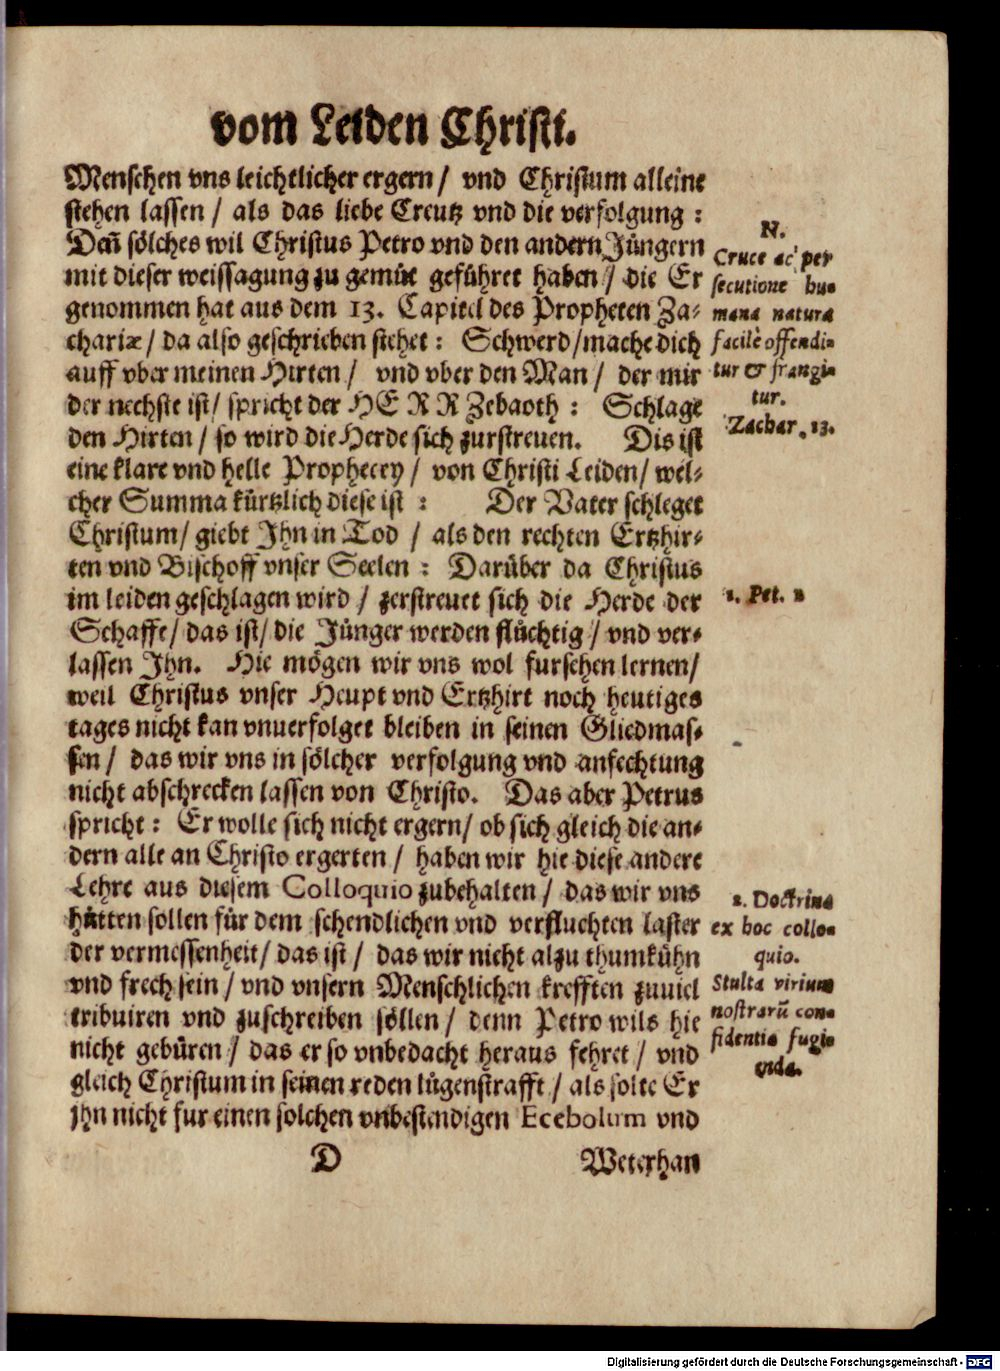 vom Leiden Christi.
Menschen vns leichtlicher ergern / vnd Christum alleine
stehen lassen / als das liebe Creutz vnd die verfolgung :
Deñ sölches wil Christus Petro vnd den andern Jüngern
mit dieser weissagung zu gemüt geführet haben / die Er
genommen hat aus dem 13. Capitel des Propheten Za-
chariæ / da also geschrieben stehet : Schwerd / mache dich
auff vber meinen Hirten / vnd vber den Man / der mir
der nechste ist / spricht der HERR Zebaoth : Schlage
den Hirten / so wird die Herde sich zurstreuen. Dis ist
eine klare vnd helle Prophecey / von Christi Leiden / wel-
cher Summa kürtzlich diese ist : Der Vater schleget
Christum / giebt Jhn in Tod / als den rechten Ertzhir-
ten vnd Bischoff vnser Seelen : Darüber da Christus
im leiden geschlagen wird / zerstreuet sich die Herde der
Schaffe / das ist / die Jünger werden flüchtig / vnd ver-
lassen Jhn. Hie mögen wir vns wol fursehen lernen /
weil Christus vnser Heupt vnd Ertzhirt noch heutiges
tages nicht kan vnuerfolget bleiben in seinen Gliedmas-
sen / das wir vns in sölcher verfolgung vnd anfechtung
nicht abschrecken lassen von Christo. Das aber Petrus
spricht : Er wolle sich nicht ergern / ob sich gleich die an-
dern alle an Christo ergerten / haben wir hie diese andere
Lehre aus diesem Colloquio zubehalten / das wir vns
hütten sollen für dem schendlichen vnd verfluchten laster
der vermessenheit / das ist / das wir nicht alzu thumkühn
vnd frech sein / vnd vnsern Menschlichen krefften zuuiel
tribuiren vnd zuschreiben söllen / denn Petro wils hie
nicht gebüren / das er so vnbedacht heraus fehret / vnd
gleich Christum in seinen reden lügenstrafft / als solte Er
jhn nicht fur einen solchen vnbestendigen Ecebolum vnd
D Weterhan
N.
Cruce ac per
secutione hu-
mana natura
facilè offendi-
tur & frangi-
tur.
Zachar. 13.
1. Pet. 2
2. Doctrina
ex hoc collo-
quio.
Stulta virium
nostrarũ con-
fidentia fugi-
enda.
Digitalisierung gefördert durch die Deutsche Forschungsgemeinschaft - DFG